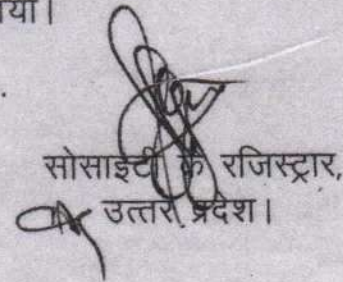 या।
सोसाइटी के रजिस्ट्रार,
उत्तर प्रदेश।